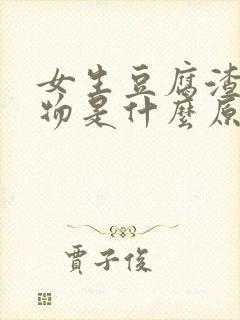 女生豆腐渣
物是什麼原
賈子俊